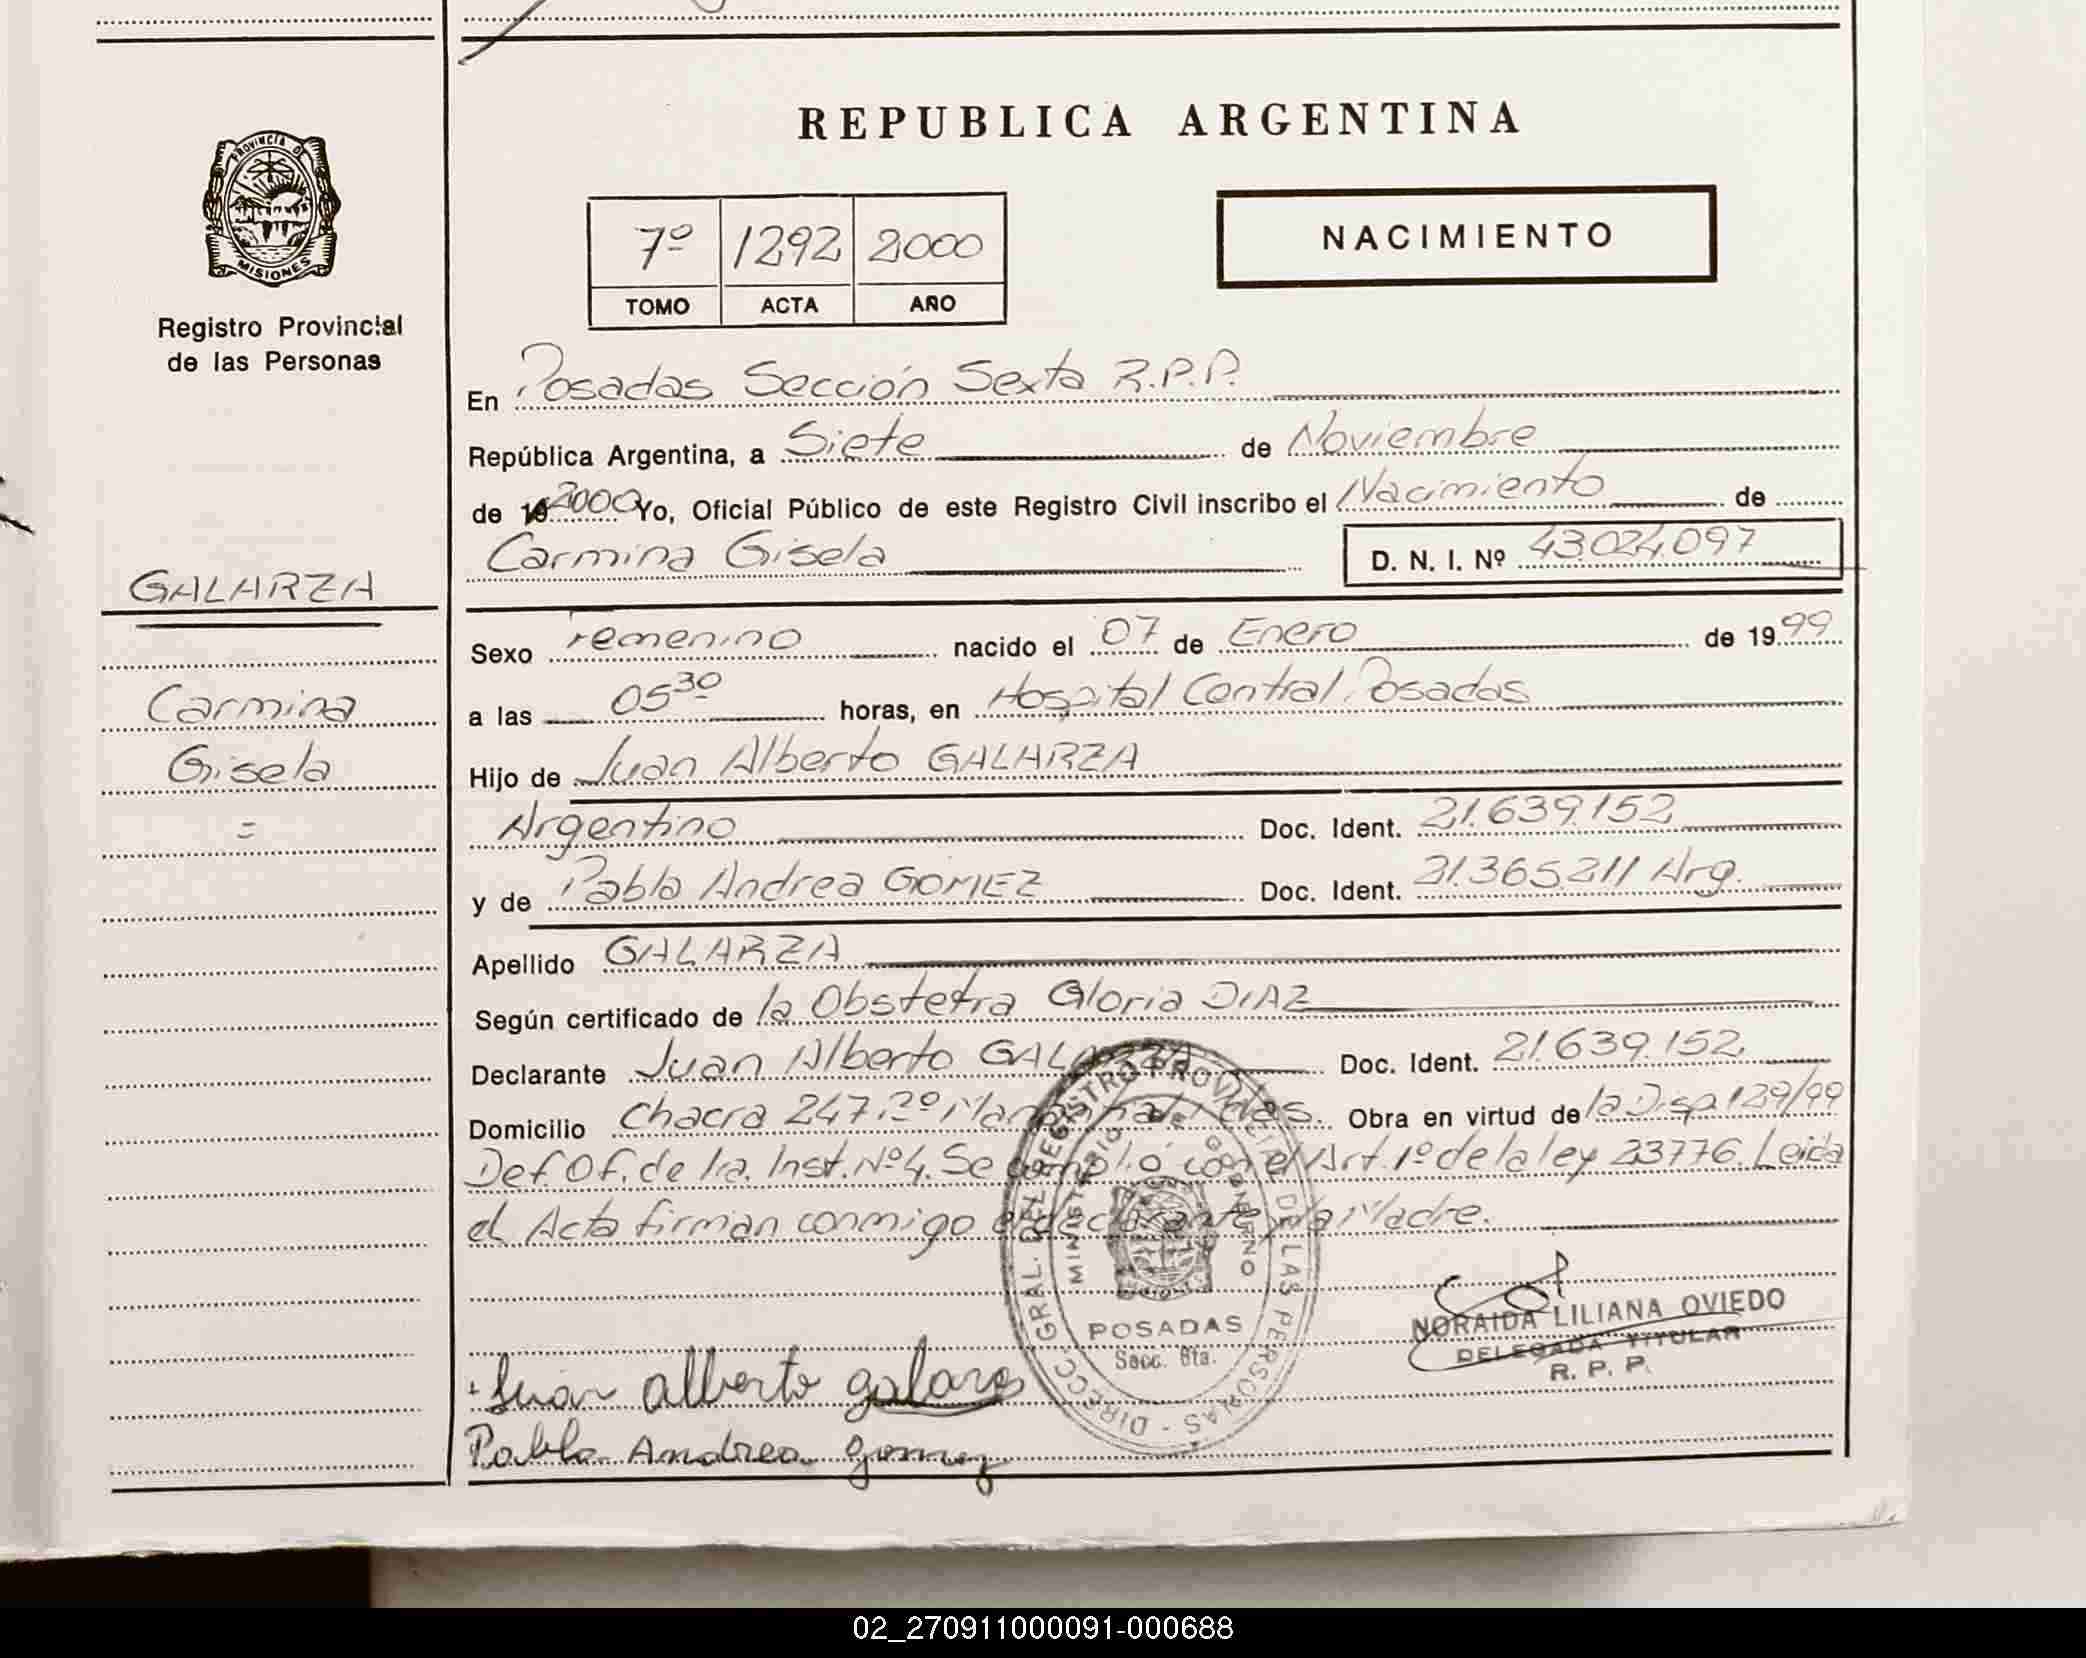 REPUBLICA ARGENTINA
PROVINCIA DE
MISIONES
Registro Provincial
de las Personas
7º 1292 2000
TOMO ACTA AÑO
NACIMIENTO
En Posadas Sección Sexta R.P.P.
República Argentina, a Siete de Noviembre
de 19 2000 Yo, Oficial Público de este Registro Civil inscribo el Nacimiento de
Carmina Gisela D. N. I. Nº 43.024.097
GALARZA
Carmina
Gisela
=
Sexo Femenino nacido el 07 de Enero de 1999
a las 05 30 horas, en Hospital Central Posadas
Hijo de Juan Alberto GALARZA
Argentino Doc. Ident. 21.639.152
y de Pabla Andrea GOMEZ Doc. Ident. 21.365.211 Arg.
Apellido GALARZA
Según certificado de la Obstetra Gloria DIAZ
Declarante Juan Alberto GALARZA Doc. Ident. 21.639.152
Domicilio Chacra 247 Pdas. Obra en virtud de la Disp. 129/99
Def. Of. de 1ra. Inst. Nº 4. Se cumplió con el Art. 1º de la ley 23776. Leida
el Acta firman conmigo el declarante y la Madre.
DIRECC. GRAL. DEL REGISTRO PROVINCIAL DE LAS PERSONAS
MINISTERIO DE GOBIERNO
POSADAS
Secc. 6ta.
NORAIDA LILIANA OVIEDO
DELEGADA TITULAR
R. P. P.
Juan alberto galarza
Pabla Andrea gomez
02_270911000091-000688